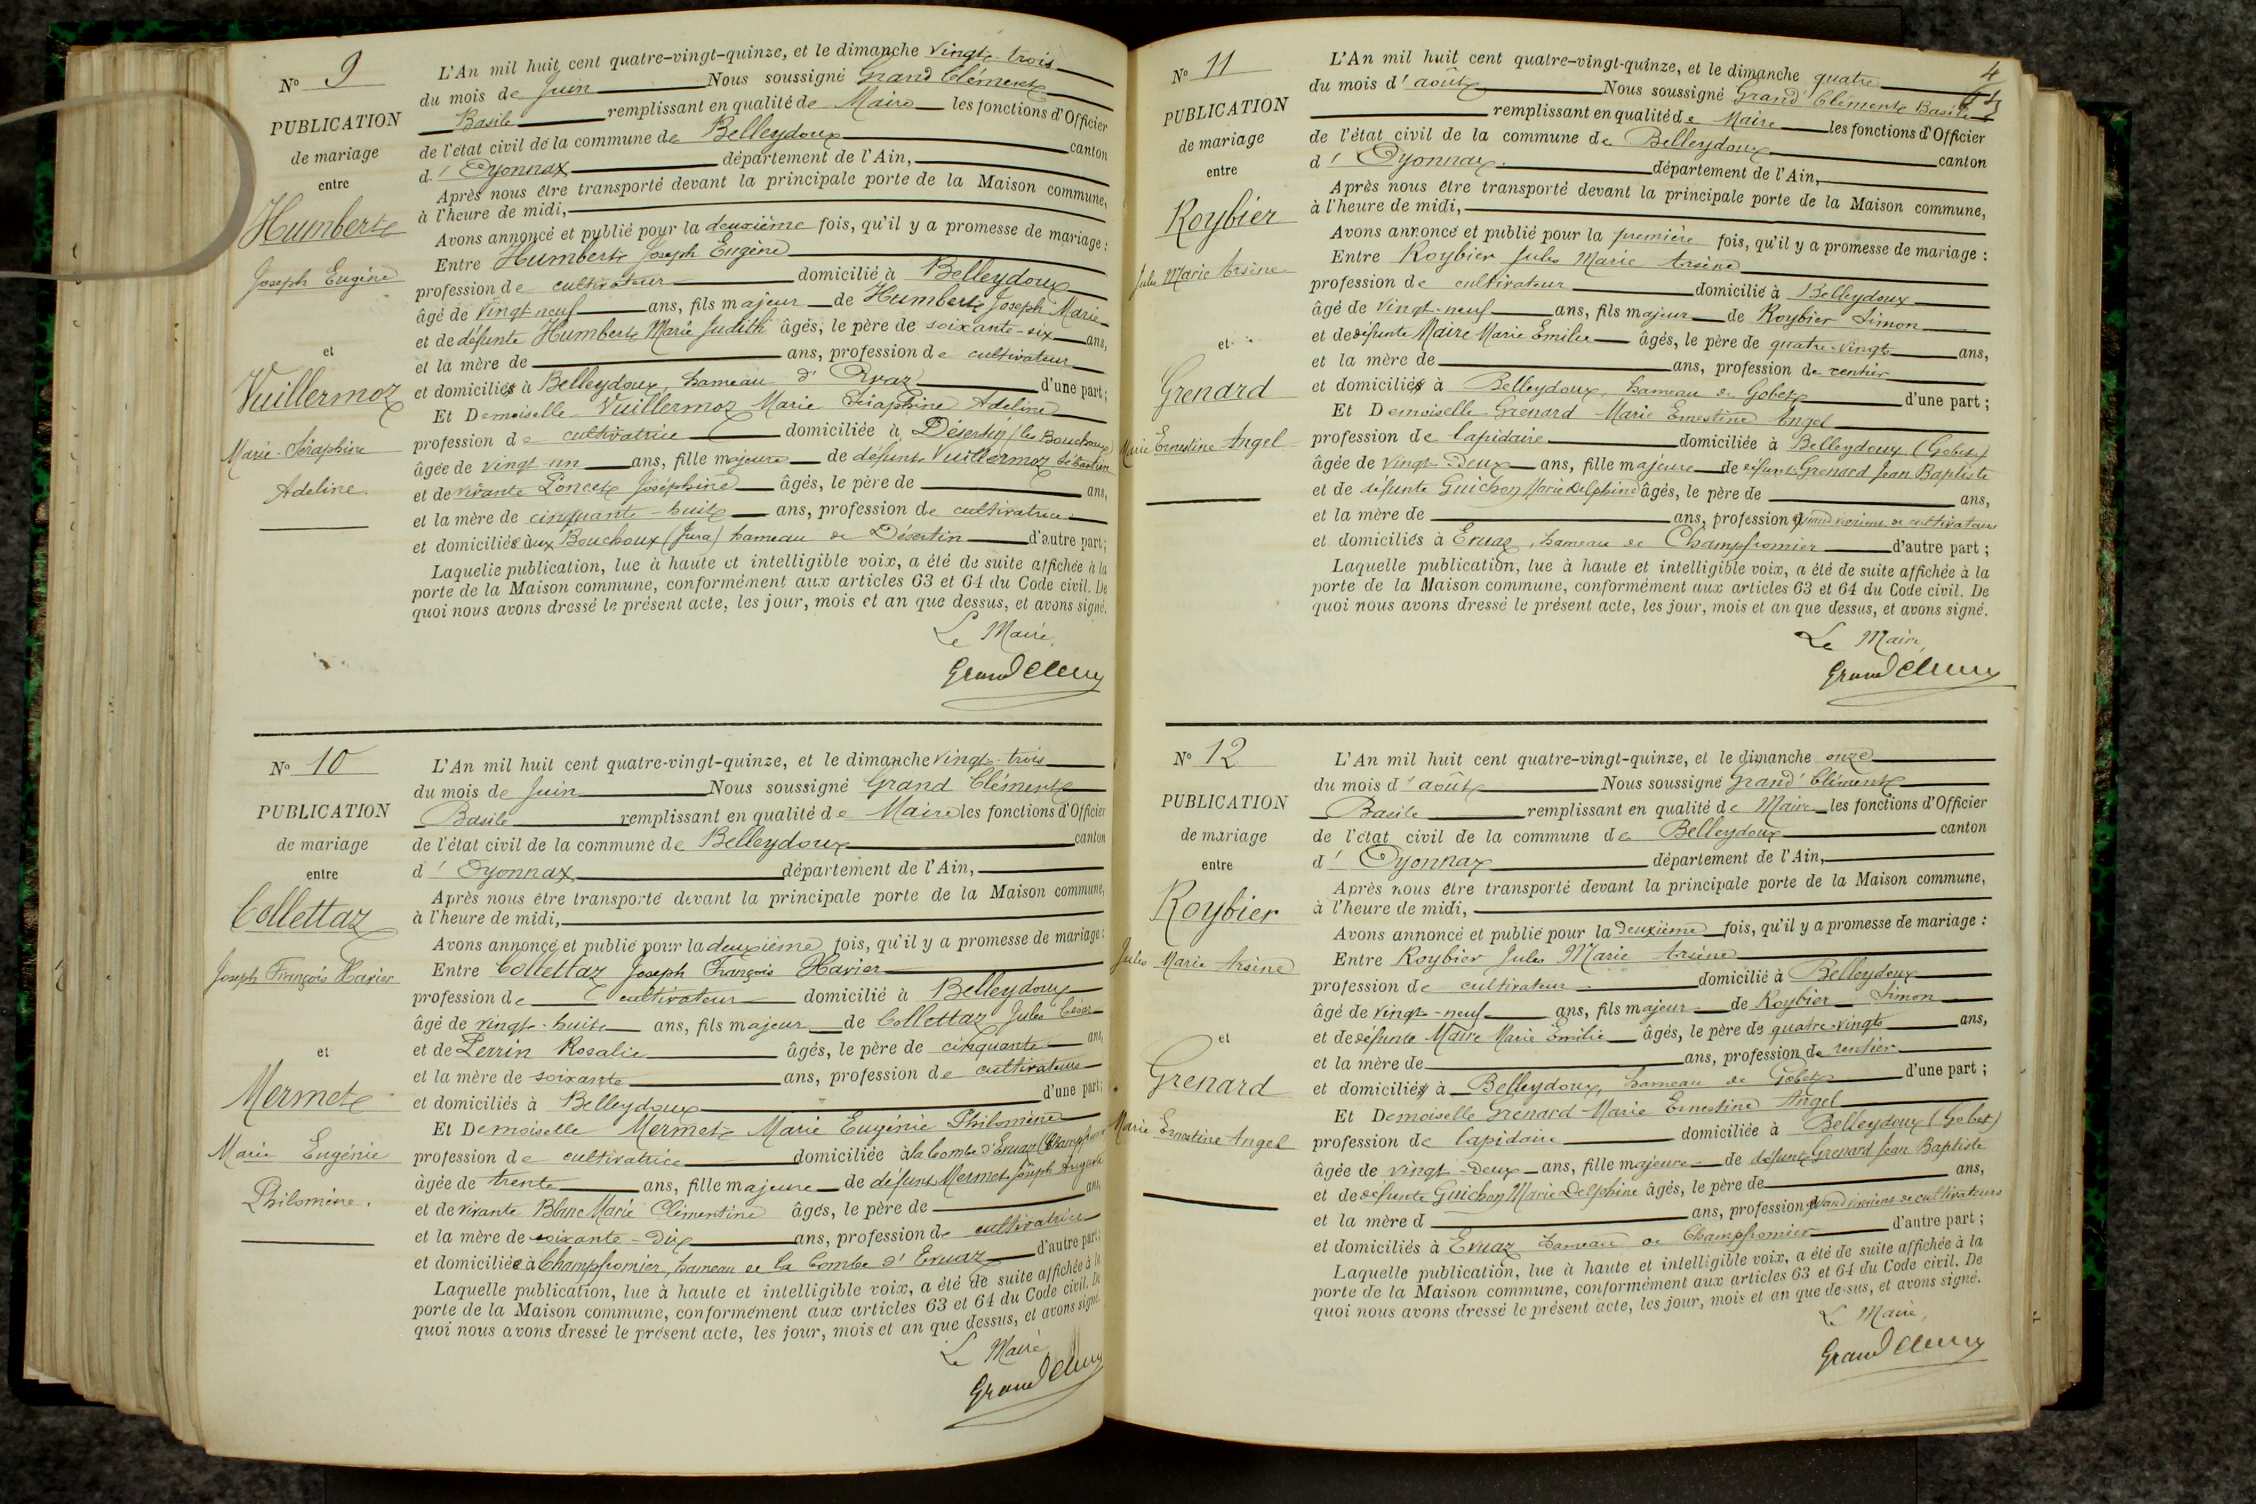 Nº 9
PUBLICATION
de mariage
entre
Humbert
Joseph Eugène
et
Vuillermoz
Marie Séraphine
Adeline.
L'An mil huit cent quatre-vingt-quinze, et le dimanche vingt-trois
du mois de Juin Nous soussigné Grand Clément
Basile remplissant en qualité de Maire les fonctions d'Officier
de l'état civil de la commune de Belleydoux canton
d'Oyonnax département de l'Ain,
Après nous être transporté devant la principale porte de la Maison commune,
à l'heure de midi,
Avons annoncé et publié pour la deuxième fois, qu'il y a promesse de mariage :
Entre Humbert Joseph Eugène
profession de cultivateur domicilié à Belleydoux
âgé de vingt neuf ans, fils majeur de Humbert Joseph Marie
et de défunte Humbert Marie Judith âgés, le père de soixante-six ans,
et la mère de ans, profession de cultivateur
et domiciliés à Belleydoux, hameau d' d'une part ;
Et Demoiselle Vuillermoz Marie Séraphine Adeline
profession de cultivatrice domiciliée à Désertin (les Bouchoux)
âgée de vingt-un ans, fille majeure de défunt Vuillermoz Sébastien
et de vivante Poncet Joséphine âgés, le père de ans,
et la mère de cinquante-huit ans, profession de cultivatrice
et domiciliée aux Bouchoux (Jura) hameau de Désertin d'autre part ;
Laquelle publication, lue à haute et intelligible voix, a été de suite affichée à la
porte de la Maison commune, conformément aux articles 63 et 64 du Code civil. De
quoi nous avons dressé le présent acte, les jour, mois et an que dessus, et avons signé.
Le Maire,
Grand Clément
Nº 10
PUBLICATION
de mariage
entre
Collettaz
Joseph François Xavier
et
Mermet
Marie Eugénie
Philomène.
L'An mil huit cent quatre-vingt-quinze, et le dimanche vingt-trois
du mois de Juin Nous soussigné Grand Clément
Basile remplissant en qualité de Maire les fonctions d'Officier
de l'état civil de la commune de Belleydoux canton
d'Oyonnax département de l'Ain,
Après nous être transporté devant la principale porte de la Maison commune,
à l'heure de midi,
Avons annoncé et publié pour la deuxième fois, qu'il y a promesse de mariage :
Entre Collettaz Joseph François Xavier
profession de cultivateur domicilié à Belleydoux
âgé de vingt-huit ans, fils majeur de Collettaz Jules César
et de Perrin Rosalie âgés, le père de cinquante ans,
et la mère de soixante ans, profession de cultivateurs
et domiciliés à Belleydoux d'une part ;
Et Demoiselle Mermet Marie Eugénie Philomène
profession de cultivatrice domiciliée à la Combe d'Evuaz (Champfromier
âgée de trente ans, fille majeure de défunt Mermet Joseph
et de vivante Blanc Marie Clémentine âgés, le père de ans,
et la mère de soixante-dix ans, profession de cultivatrice
et domiciliée à Champfromier, hameau de la Combe d'Evuaz d'autre part ;
Laquelle publication, lue à haute et intelligible voix, a été de suite affichée à la
porte de la Maison commune, conformément aux articles 63 et 64 du Code civil. De
quoi nous avons dressé le présent acte, les jour, mois et an que dessus, et avons signé.
Le Maire
Grand Clément
4
Nº 11
PUBLICATION
de mariage
entre
Roybier
Jules Marie Arsène
et
Grenard
Marie Ernestine Angel
L'An mil huit cent quatre-vingt-quinze, et le dimanche quatre
du mois d'août Nous soussigné Grand Clément Basile
remplissant en qualité de Maire les fonctions d'Officier
de l'état civil de la commune de Belleydoux canton
d'Oyonnax département de l'Ain,
Après nous être transporté devant la principale porte de la Maison commune,
à l'heure de midi,
Avons annoncé et publié pour la première fois, qu'il y a promesse de mariage :
Entre Roybier Jules Marie Arsène
profession de cultivateur domicilié à Belleydoux
âgé de vingt-neuf ans, fils majeur de Roybier Simon
et de défunte Maire Marie Emilie âgés, le père de quatre-vingt ans,
et la mère de ans, profession de rentier
et domiciliés à Belleydoux, hameau de Gobet d'une part ;
Et Demoiselle Grenard Marie Ernestine Angel
profession de lapidaire domiciliée à Belleydoux (Gobet)
âgée de vingt-deux ans, fille majeure de défunt Grenard Jean Baptiste
et de défunte Guichon Marie Delphine âgés, le père de ans,
et la mère de ans, profession quand vivaient de cultivateurs
et domiciliés à Evuaz, hameau de Champfromier d'autre part ;
Laquelle publication, lue à haute et intelligible voix, a été de suite affichée à la
porte de la Maison commune, conformément aux articles 63 et 64 du Code civil. De
quoi nous avons dressé le présent acte, les jour, mois et an que dessus, et avons signé.
Le Maire,
Grand Clément
Nº 12
PUBLICATION
de mariage
entre
Roybier
Jules Marie Arsène
et
Grenard
Marie Ernestine Angel
L'An mil huit cent quatre-vingt-quinze, et le dimanche onze
du mois d'août Nous soussigné Grand Clément
Basile remplissant en qualité de Maire les fonctions d'Officier
de l'état civil de la commune de Belleydoux canton
d'Oyonnax département de l'Ain,
Après nous être transporté devant la principale porte de la Maison commune,
à l'heure de midi,
Avons annoncé et publié pour la deuxième fois, qu'il y a promesse de mariage :
Entre Roybier Jules Marie Arsène
profession de cultivateur domicilié à Belleydoux
âgé de vingt-neuf ans, fils majeur de Roybier Simon
et de défunte Maire Marie Emilie âgés, le père de quatre-vingts ans,
et la mère de ans, profession de rentier
et domiciliés à Belleydoux, hameau de Gobet d'une part ;
Et Demoiselle Grenard Marie Ernestine Angel
profession de lapidaire domiciliée à Belleydoux (Gobet)
âgée de vingt-deux ans, fille majeure de défunt Grenard Jean Baptiste
et de défunte Guichon Marie Delphine âgés, le père de ans,
et la mère d ans, profession quand vivaient de cultivateurs
et domiciliés à Evuaz hameau de Champfromier d'autre part ;
Laquelle publication, lue à haute et intelligible voix, a été de suite affichée à la
porte de la Maison commune, conformément aux articles 63 et 64 du Code civil. De
quoi nous avons dressé le présent acte, les jour, mois et an que dessus, et avons signé.
Le Maire,
Grand Clément